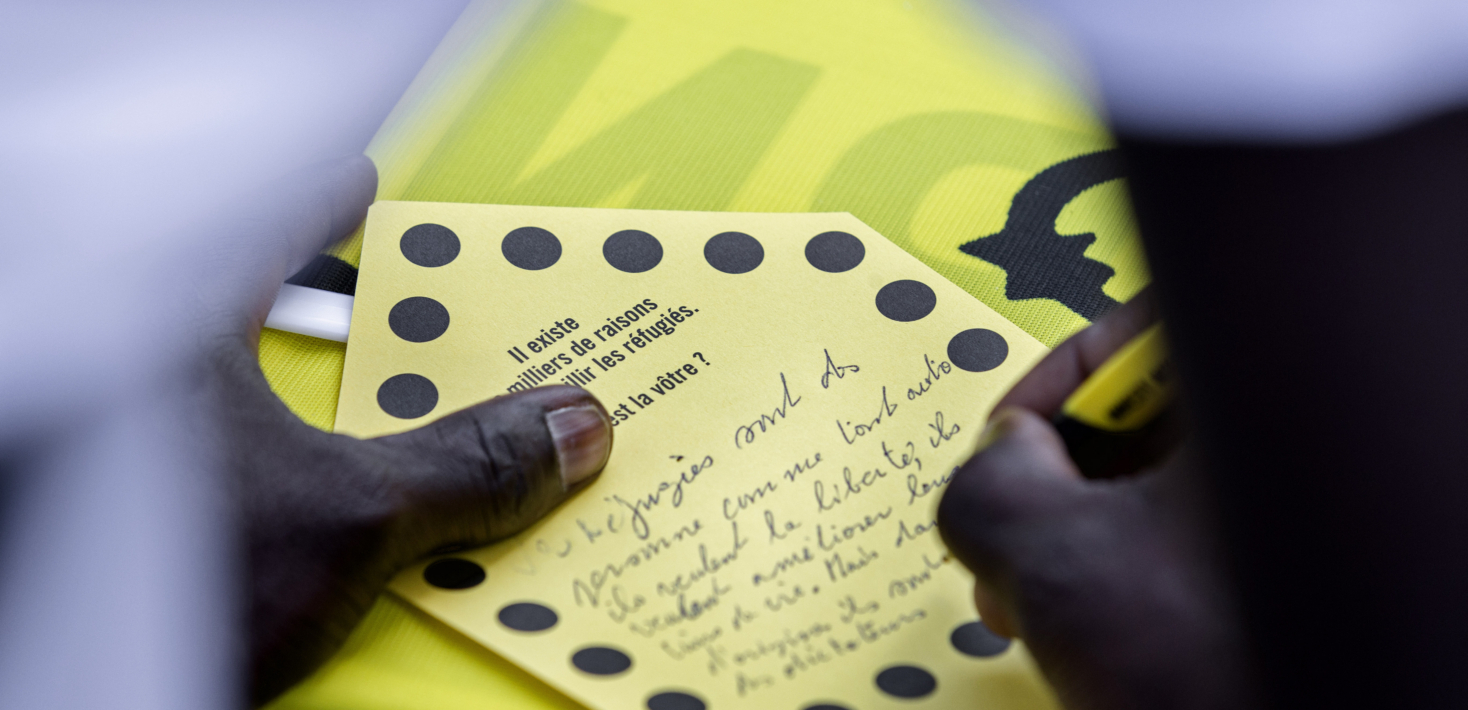 Il existe
milliers de raisons
illir les réfugiés.
est la vôtre ?
Réfugiés sont des
personne comme l'ont autio
ils veulent la liberté, ils
veulent améliorer leurs
de vie. Mais dans
d'origine ils sont